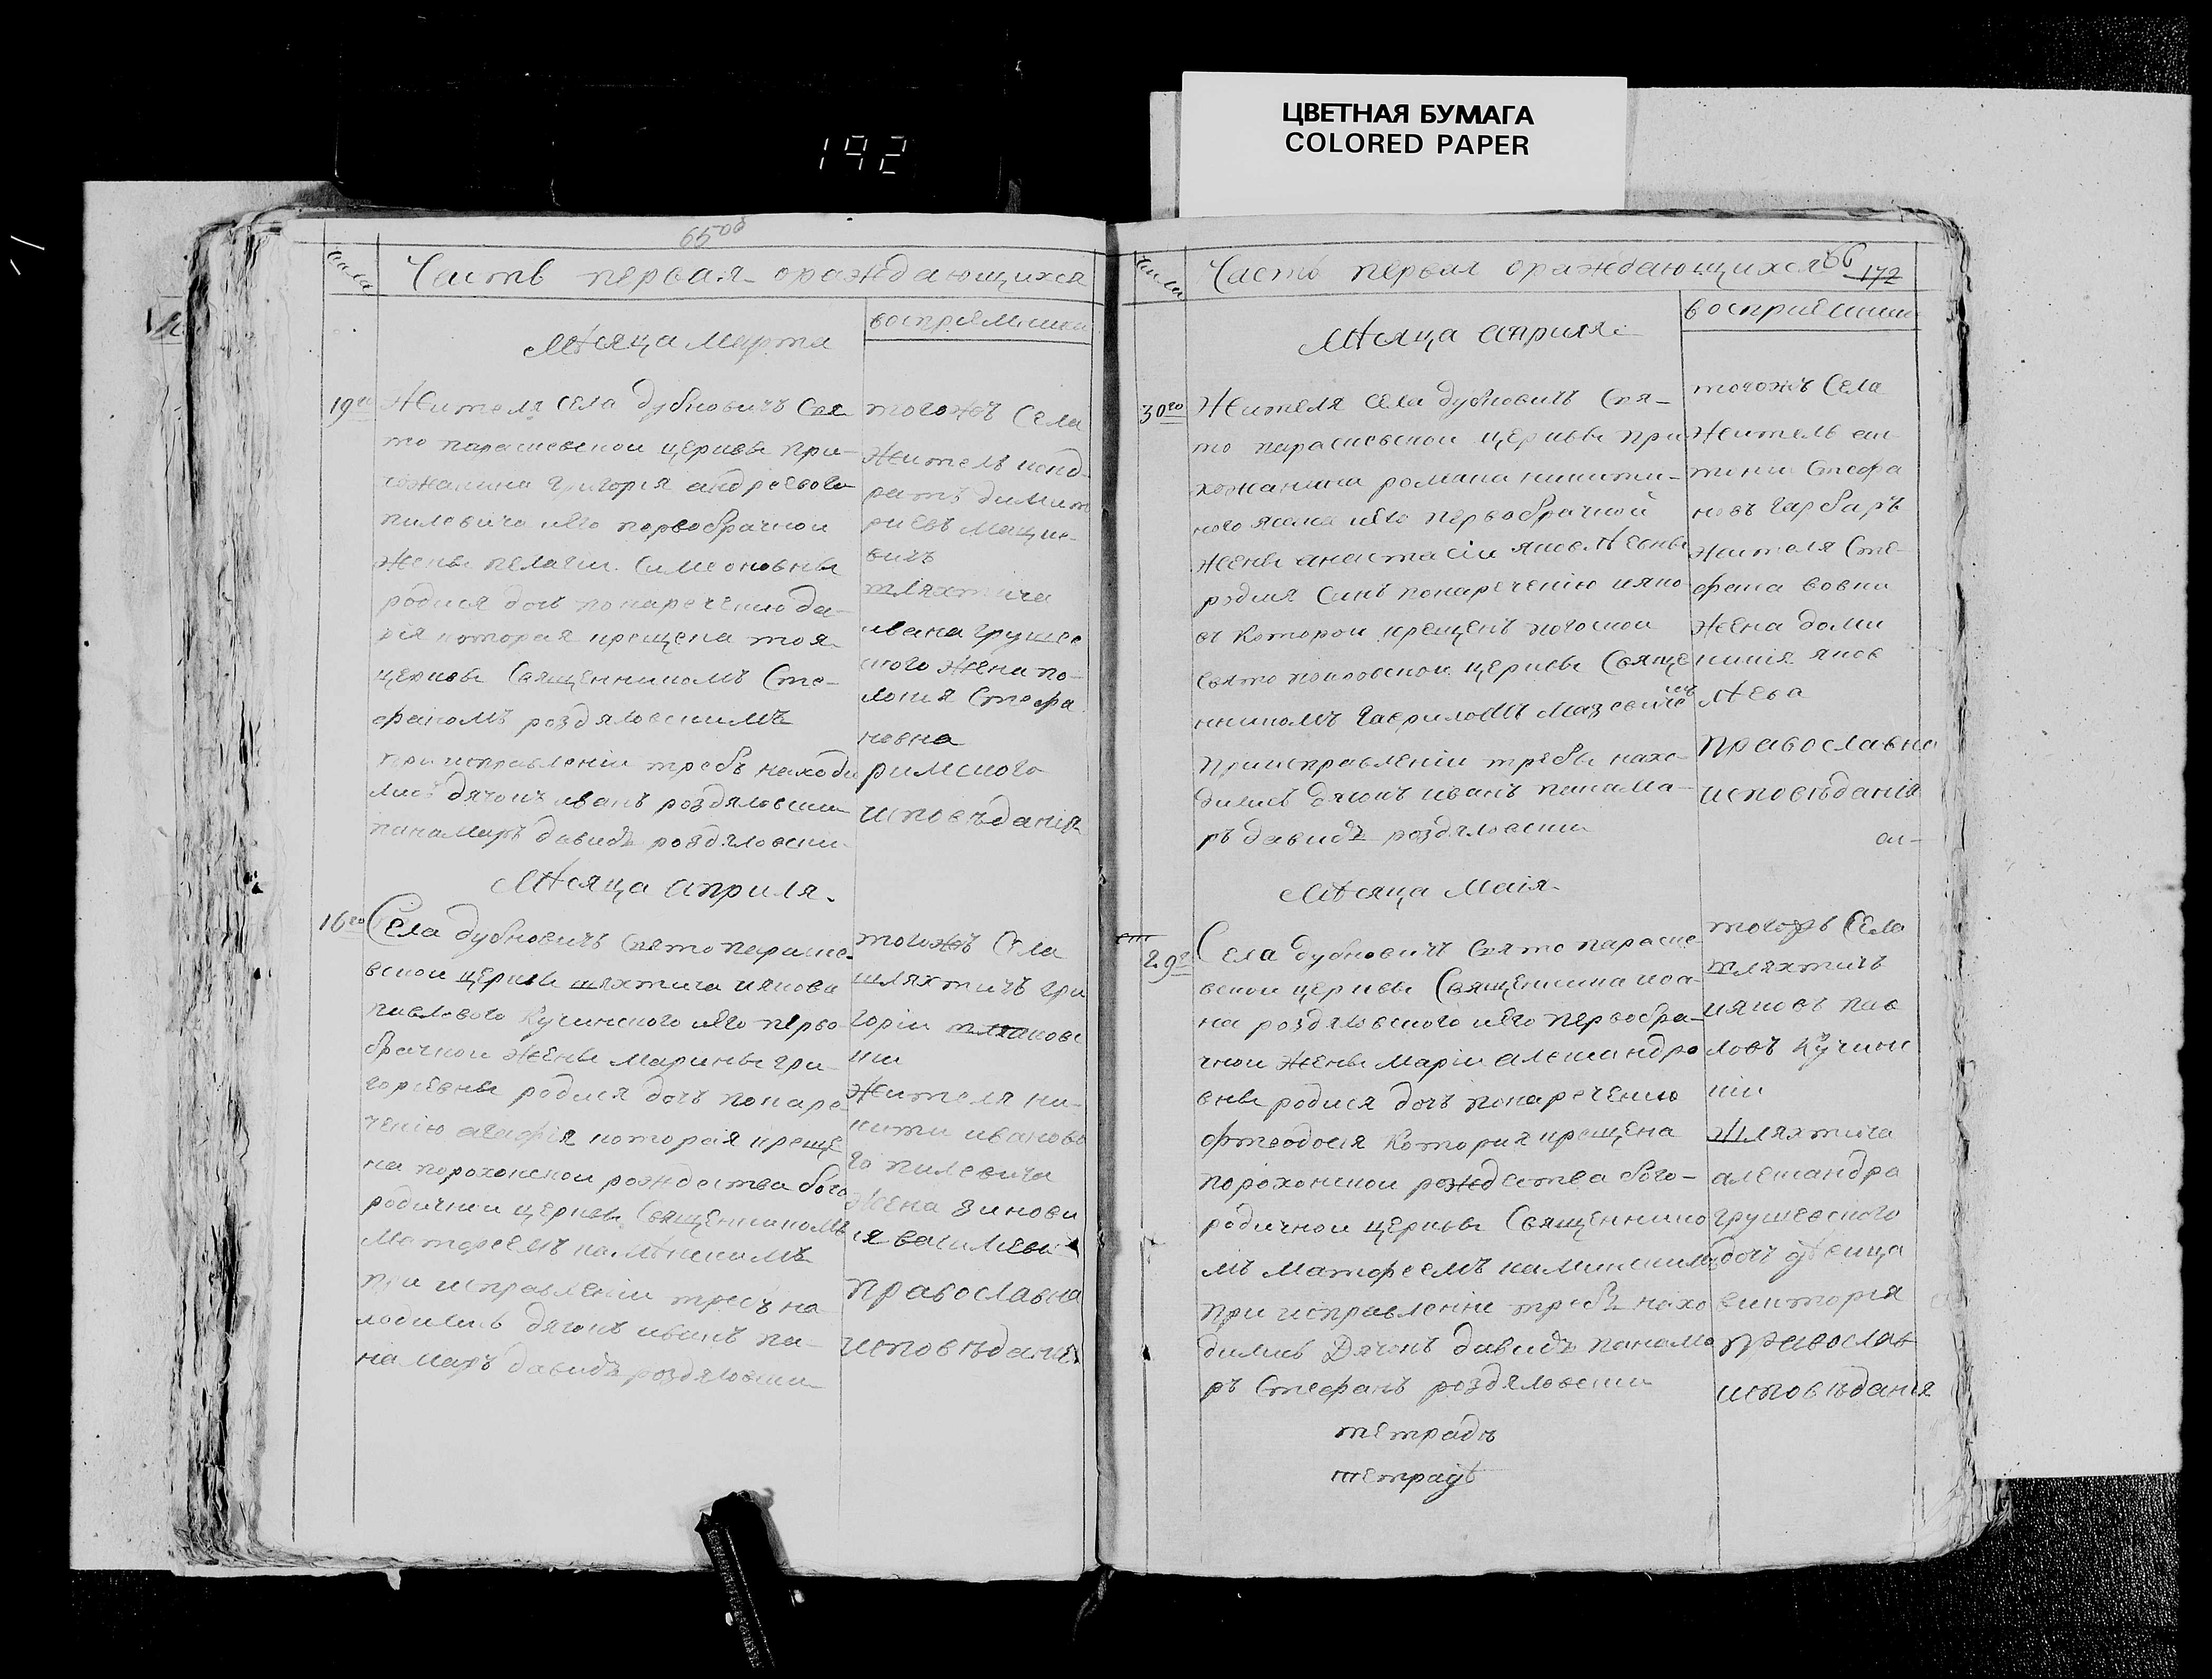 ЦВЕТНАЯ БУМАГА
COLORED PAPER
192
65об
числа
Часть первая ораждающихся
восприемники
Мѣсяца Марта
19го
Жителя села дубновичъ Свя
то параскевской церквы при-
хожанина Григорія андреевого
пилевича иего первобрачной
Жены пелагіи Симеоновны
родися дочъ понаречению да-
рія которая крещена тоя
церквы Священникомъ Сте-
фаномъ роздяловскимъ
при исправленіи требъ находи
лись дячокъ иванъ роздяловски
панамаръ давидъ роздяловски
тогожъ Села
Житель конд
ратъ димит
риевъ Мацке-
вичъ
шляхтича
ивана грушев
ского жена по-
лония Стефа
новна
римского
исповѣдания
Мѣсяца априля.
16го
Села дубновичъ Свято параске-
вской церквы шляхтича якова
павлового Кучинского иего перво-
брачной жены Марины гри-
гориевны родися дочъ понаре-
чению агафія которая креще
на порохонской рождества бого
родичной церквы Священникомъ
Матфеемъ камѣнскимъ
при исправленіи требъ на
ходились дячокъ иванъ па-
намаръ давидъ роздяловски
тогожъ Села
шляхтичъ гри
горій
Жителя ни-
кити иваново
го пилевича
Жена зинови
я василева
православна
исповѣдания
66
172
числа
Часть первая ораждающихся
восприемники
Мѣсяца априля
30го
Жителя села дубновичъ Свя-
то параскевской церквы при
хожанина романа никити-
ного иего первобрачной
жены анастасіи яковлѣвны
родися Синъ понаречению яко
въ которой крещенъ
свято церквы Свяще
нникомъ гавриломъ
При исправленіи требы нахо-
дились дячокъ иванъ панама-
ръ давидъ роздяловски
тогожъ Села
Житель
Стефа
новъ гарбаръ
жителя Сте-
фана вовка
жена доми
никия яков
лѣва
православна
исповѣданія
Мѣсяца Маія
29го
Села дубновичъ Свято параске
вской церквы Священника иоа-
на роздяловского иего первобра-
чной жены Маріи александро
вны родися дочъ понаречению
фтеодосия Которая крещена
порохонской рождества бого-
родичной церквы Священнико
мъ Матфеемъ каминскимъ
При исправлении требъ нахо
дились Дячокъ давидъ панама
ръ Стефанъ роздяловски
тетрадъ
тетрадѣ
тогожъ Села
шляхтичъ
яковъ пав
ловъ Кучинс
кій
Шляхтича
александра
грушевского
дочъ дѣвица
виктория
православ
исповѣдания